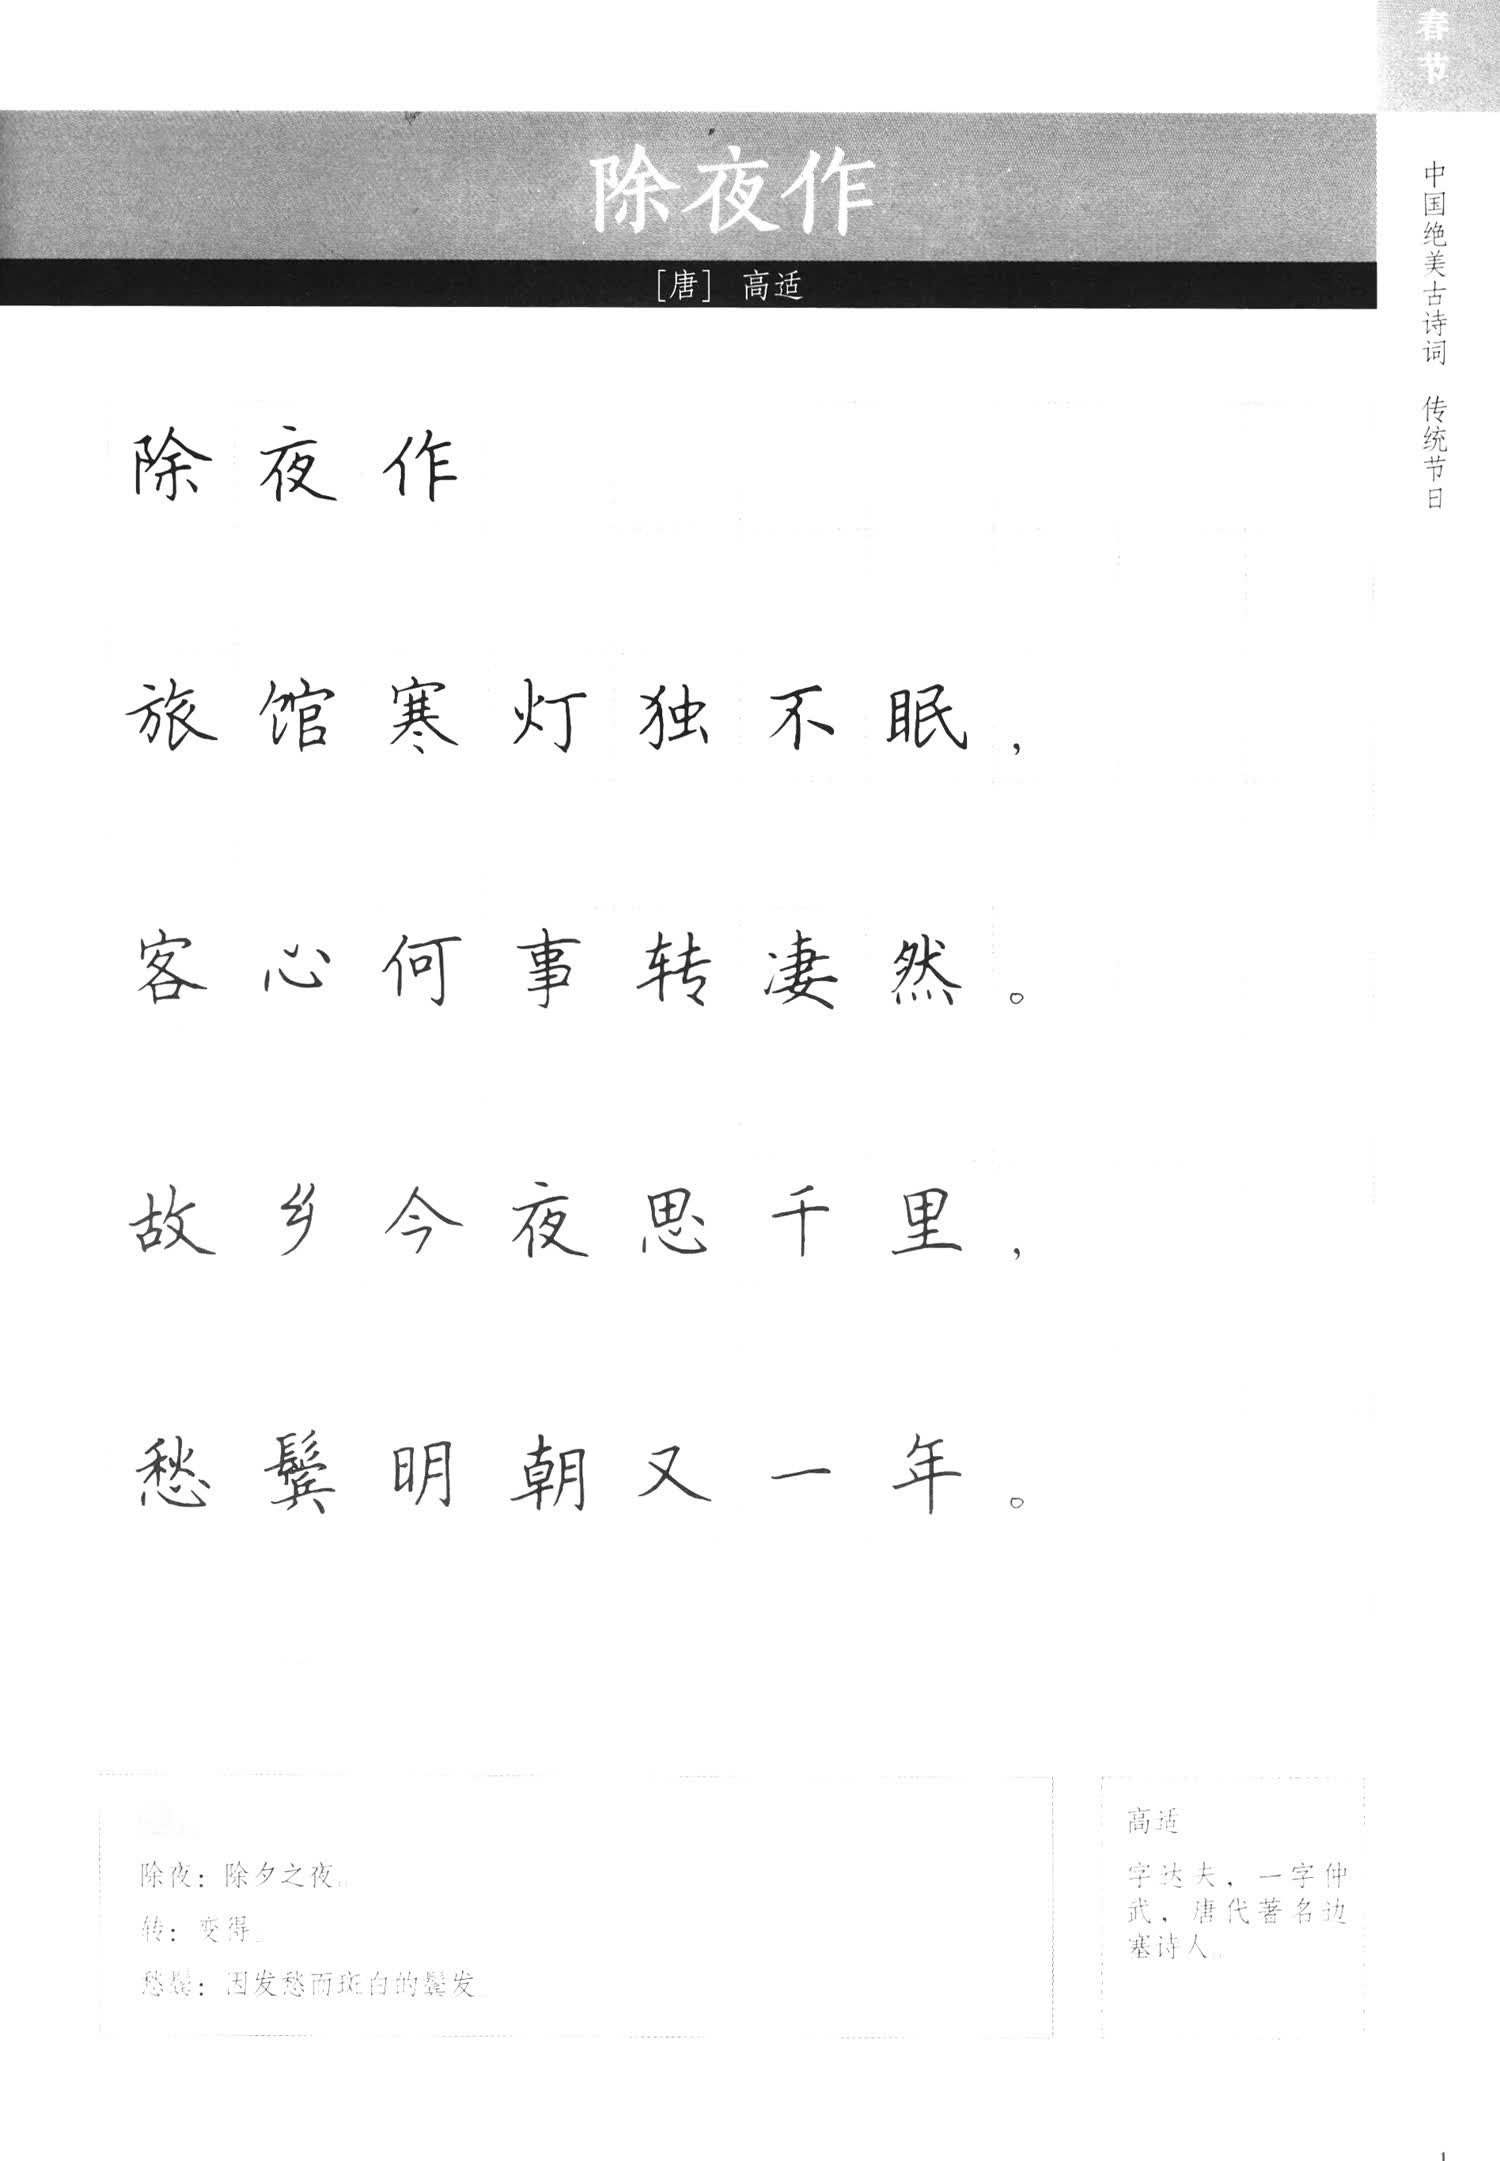 春节
中国绝美古诗词 传统节日
除夜作
[唐] 高适
除夜作
旅馆寒灯独不眠，
客心何事转凄然。
故乡今夜思千里，
愁鬓明朝又一年。
除夜：除夕之夜。
转：变得。
愁鬓：因发愁而斑白的鬓发
高适
字达夫，一字仲
武，唐代著名边
塞诗人。
1